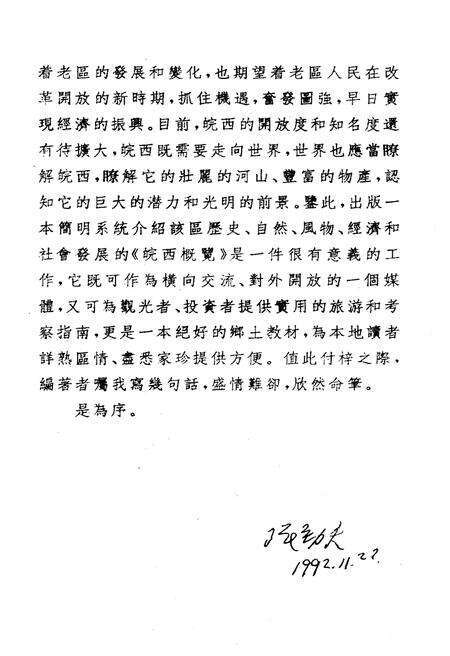 着老區的發展和變化，也期望着老區人民在改
革開放的新時期，抓住機遇，奮發圖強，早日實
現經濟的振興。目前，皖西的開放度和知名度還
有待擴大，皖西既需要走向世界，世界也應當瞭
解皖西，瞭解它的壯麗的河山、豐富的物產，認
知它的巨大的潛力和光明的前景。鑒此，出版一
本簡明系統介紹該區歷史、自然、風物、經濟和
社會發展的《皖西概覽》是一件很有意義的工
作，它既可作為橫向交流、對外開放的一個媒
體，又可為觀光者、投資者提供實用的旅游和考
察指南，更是一本絕好的鄉土教材，為本地讀者
詳熟區情、盡悉家珍提供方便。值此付梓之際，
編著者囑我寫幾句話，盛情難卻，欣然命筆。
是為序。
1992.11.22